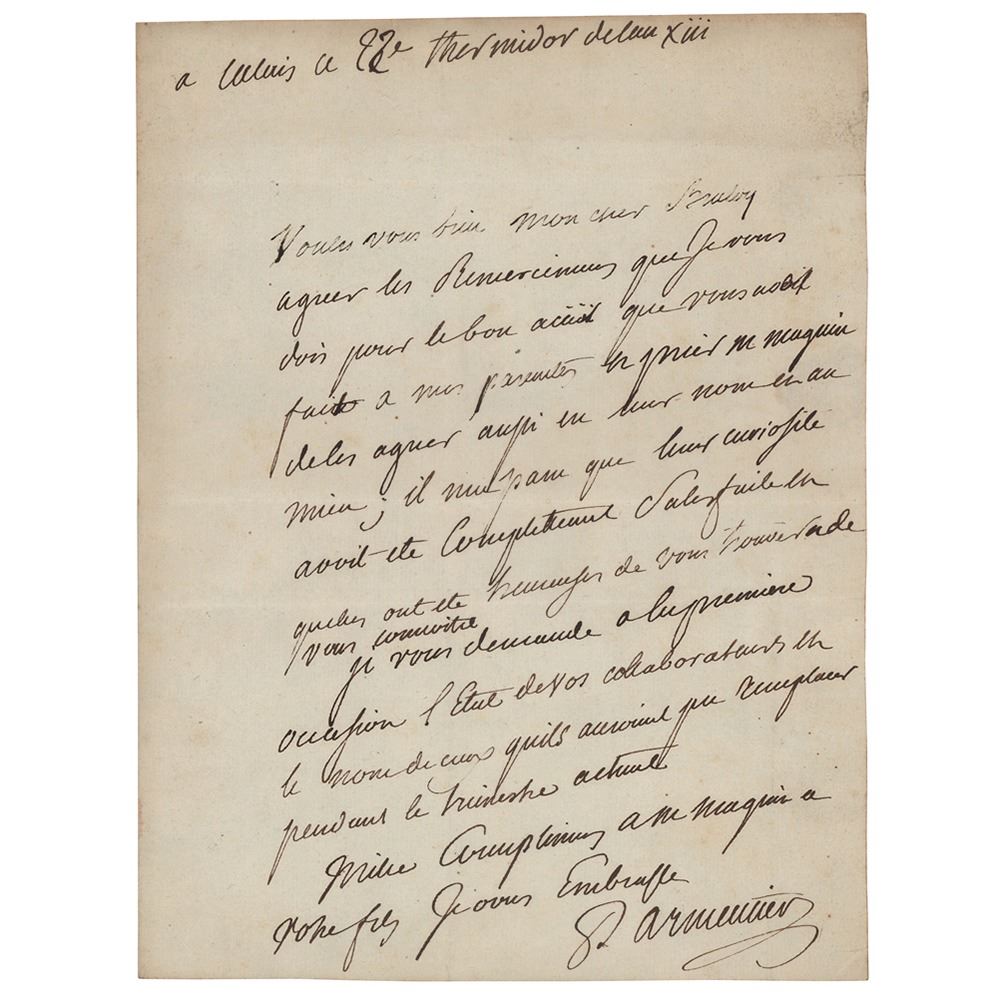 a Calais ce 22e thermidor de lan xiii
Voulés vous bien mon cher
agreer les Remerciemens que Je vous
dois pour le bon acciiil que vous avéz
fait a mes parentes et prier m maquin
de les agreer aussi en leur nom et au
mien ; il me paru que leur curiosité
avoit eté Complettement Satisfaite et
quelles ont eté heureuses de vous trouver et de
vous connoitre
je vous demande a la premiere
occasion l'Etat de vos collaborateurs et
le nom de ceux quils auroient pu remplacer
pendant le trimestre actuel
Mille Complimens a m maquin a
votre fils Je vous Embrasse
Parmentier